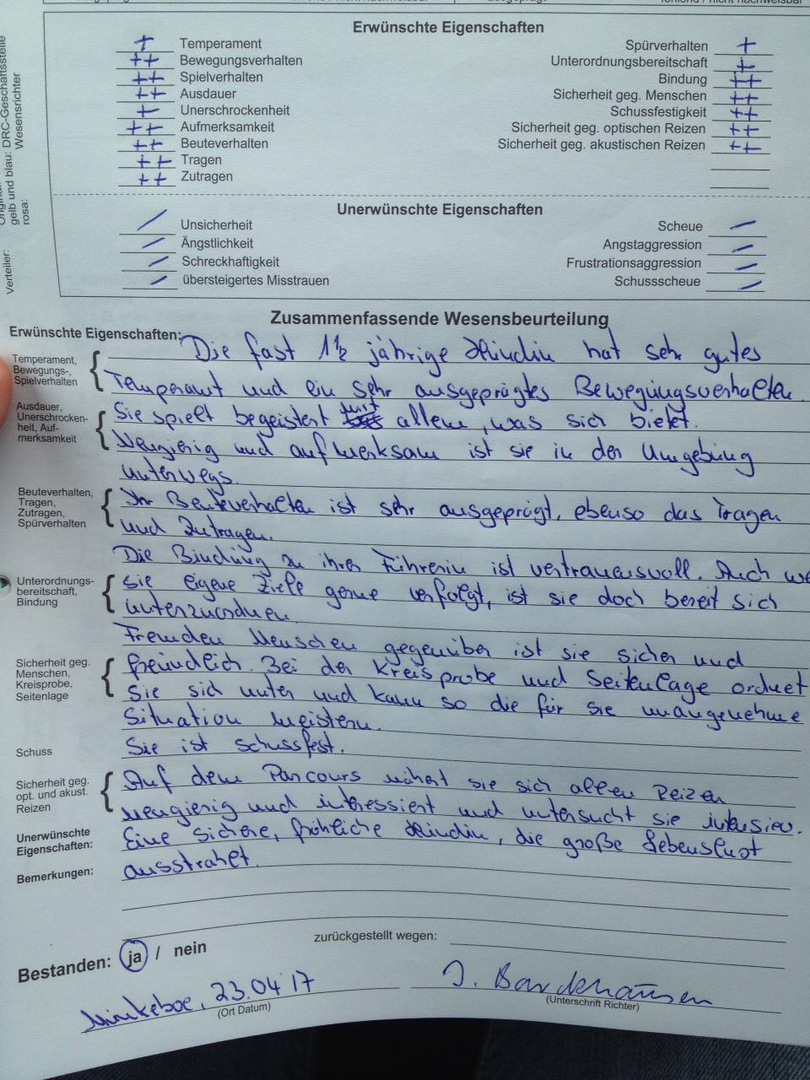 Erwünschte Eigenschaften
+ Temperament
++ Bewegungsverhalten
++ Spielverhalten
++ Ausdauer
+ Unerschrockenheit
++ Aufmerksamkeit
++ Beuteverhalten
++ Tragen
++ Zutragen
Spürverhalten +
Unterordnungsbereitschaft +
Bindung ++
Sicherheit geg. Menschen ++
Schussfestigkeit ++
Sicherheit geg. optischen Reizen ++
Sicherheit geg. akustischen Reizen ++
Unerwünschte Eigenschaften
/ Unsicherheit
/ Ängstlichkeit
/ Schreckhaftigkeit
/ übersteigertes Misstrauen
Scheue /
Angstaggression /
Frustrationsaggression /
Schussscheue /
Verteiler:
gelb und blau: DRC-Geschäftsstelle
rosa: Wesensrichter
Zusammenfassende Wesensbeurteilung
Erwünschte Eigenschaften:
Temperament,
Bewegungs-,
Spielverhalten
Die fast 1½ jährige Hündin hat sehr gutes
Temperamt und ein sehr ausgeprägtes Bewegungsverhalten.
Ausdauer,
Unerschrocken-
heit, Auf-
merksamkeit
Sie spielt begeistert mit allem, was sich bietet.
Neugierig und aufmerksam ist sie in der Umgebung
unterwegs.
Beuteverhalten,
Tragen,
Zutragen,
Spürverhalten
Ihr Beuteverhalten ist sehr ausgeprägt, ebenso das Tragen
und Zutragen.
Die Bindung zu ihrer Führerin ist vertrauensvoll. Auch
Unterordnungs-
bereitschaft,
Bindung
sie eigene Ziele gerne verfolgt, ist sie doch bereit sich
unterzuordnen.
Fremden Menschen gegenüber ist sie sicher und
Sicherheit geg.
Menschen,
Kreisprobe,
Seitenlage
freundlich. Bei der Kreisprobe und Seitenlage ordnet
sie sich unter und kann so die für sie unangenehme
Situation meistern.
Schuss
Sie ist schussfest.
Sicherheit geg.
opt. und akust.
Reizen
Auf dem Parcours nähert sie sich allen Reizen
neugierig und interessiert und untersucht sie intensiv.
Unerwünschte
Eigenschaften:
Eine sichere, fröhliche Hündin, die große Lebenslust
Bemerkungen:
ausstrahlt.
Bestanden: ja / nein
zurückgestellt wegen:
23.04.17
(Ort Datum)
(Unterschrift Richter)